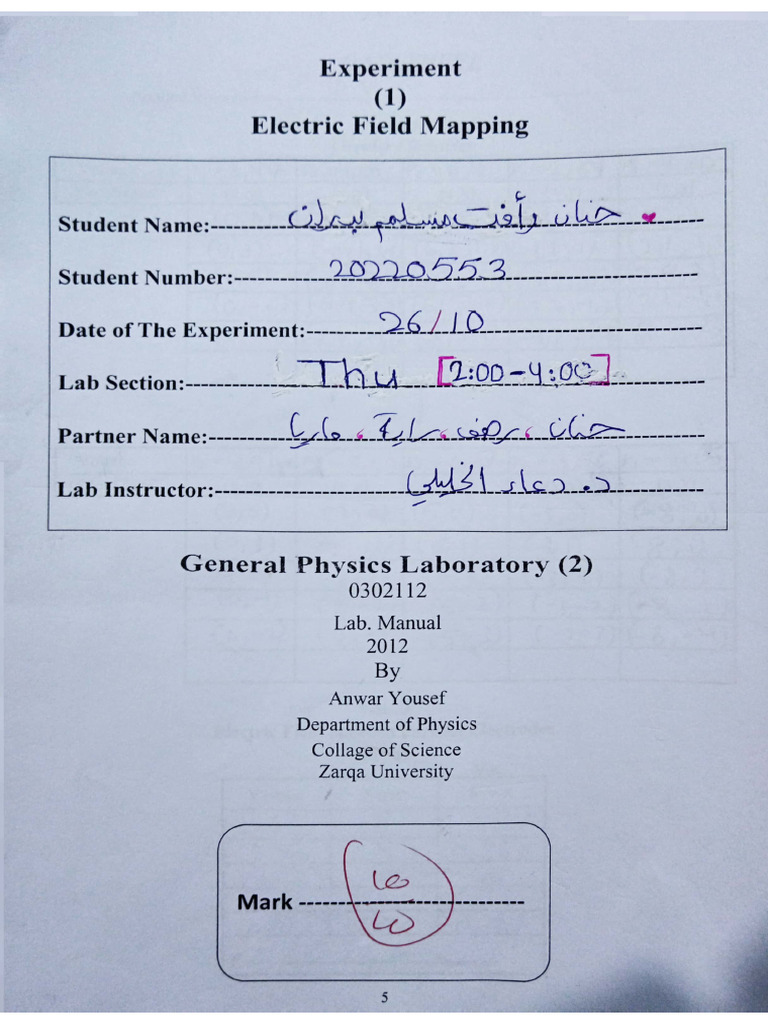 Experiment
(1)
Electric Field Mapping
Student Name:- حنان رأفت مسلم بدران
Student Number:- 20220553
Date of The Experiment:- 26/10
Lab Section:- Thu [2:00-4:00]
Partner Name:- حنان، رهف، راية، ماريا
Lab Instructor:- د. دعاء الخليلي
General Physics Laboratory (2)
0302112
Lab. Manual
2012
By
Anwar Yousef
Department of Physics
Collage of Science
Zarqa University
10
Mark
10
5